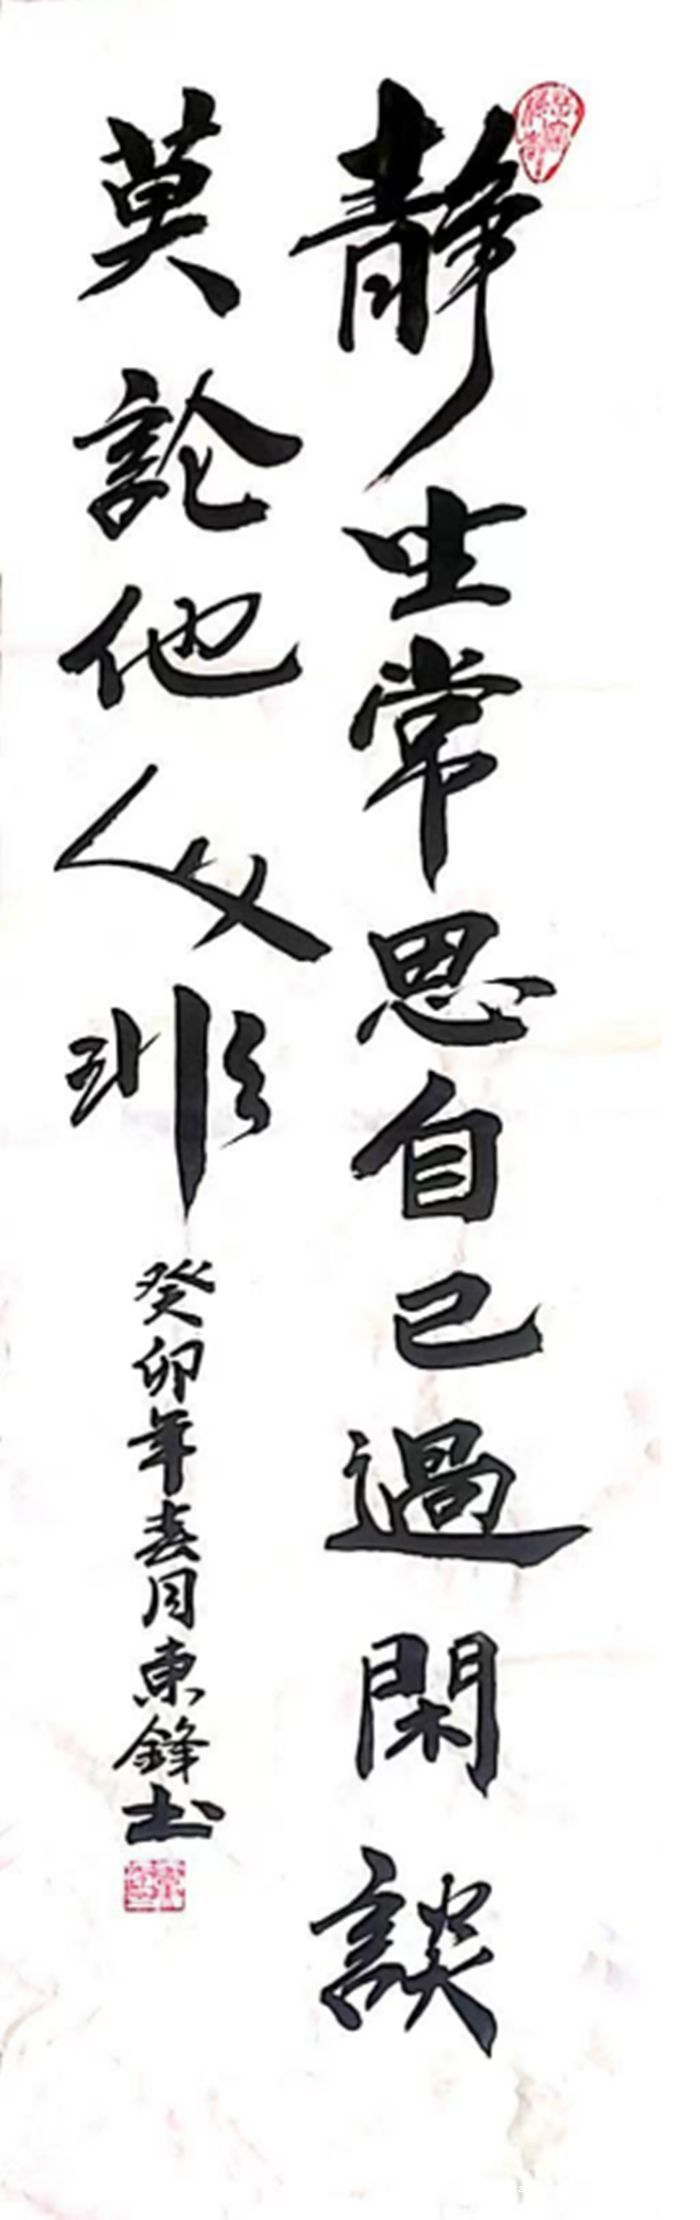 静坐常思自己過閑談
莫論他人非
癸卯年春月東鋒书